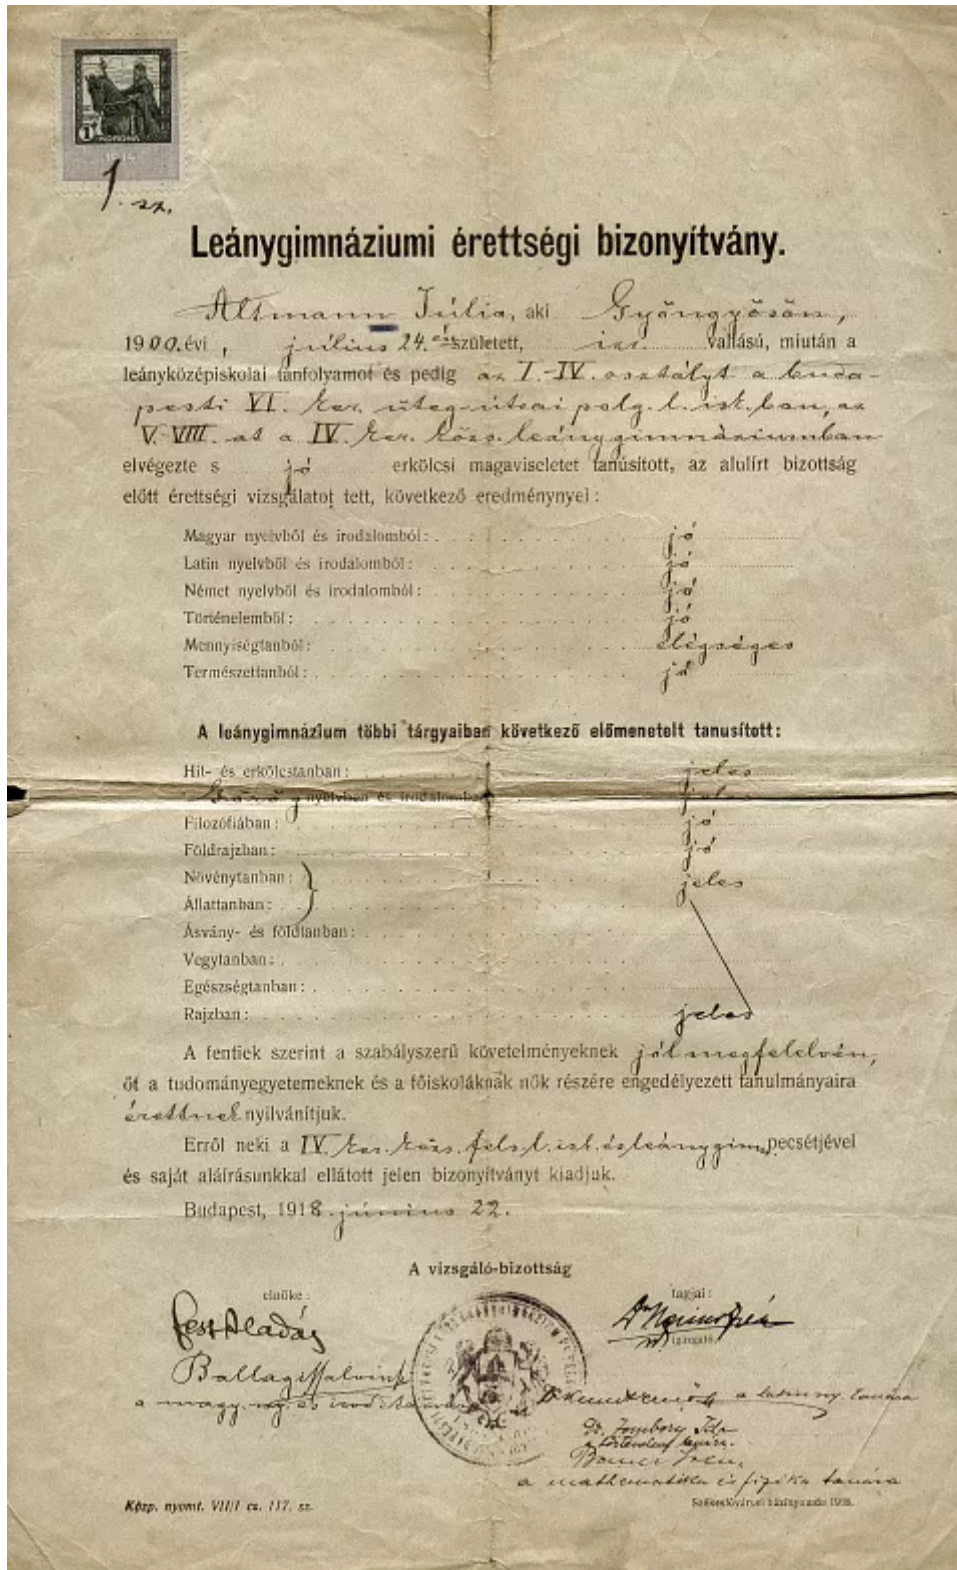 1
KORONA
1914
1. sz.
Leánygimnáziumi érettségi bizonyítvány.
Altmann Júlia, aki Gyöngyösön,
1900. évi, július 24.-én született, izr. vallású, miután a
leányközépiskolai tanfolyamot és pedig az I.-IV. osztályt a buda-
pesti VI. ker. üteg-utcai polg. l. isk.ban, az
V.-VIII. at a IV. ker. közs. leánygimnáziumban
elvégezte s jó erkölcsi magaviseletet tanúsított, az alulírt bizottság
előtt érettségi vizsgálatot tett, következő eredménynyel:
Magyar nyelvből és irodalomból: jó
Latin nyelvből és irodalomból: jó
Német nyelvből és irodalomból: jó
Történelemből: jó
Mennyiségtanból: elégséges
Természettanból: jó
A leánygimnázium többi tárgyaiban következő előmenetelt tanusított:
Hit- és erkölcstanban: jeles
Görög nyelvben és irodalomban
Filozófiában: jó
Földrajzban: jó
Növénytanban: jeles
Állattanban:
Ásvány- és földtanban:
Vegytanban:
Egészségtanban:
Rajzban: jeles
A fentiek szerint a szabályszerű követelményeknek jól megfelelvén,
őt a tudományegyetemeknek és a főiskoláknak nők részére engedélyezett tanulmányaira
érettnek nyilvánítjuk.
Erről neki a IV. ker. közs. fels. l. isk. és leánygim. pecsétjével
és saját aláírásunkkal ellátott jelen bizonyítványt kiadjuk.
Budapest, 1918. június 22.
A vizsgáló-bizottság
elnöke: tagjai:
Fest Aladár
igazgató
a magy. ny. és irod. tanára
a latin ny. tanára
Dr. Zombory
a történelem tanára.
a mathematika és fizika tanára
Közp. nyomt. VIII/I cs. 117. sz. Székesfővárosi házinyomda 1918.